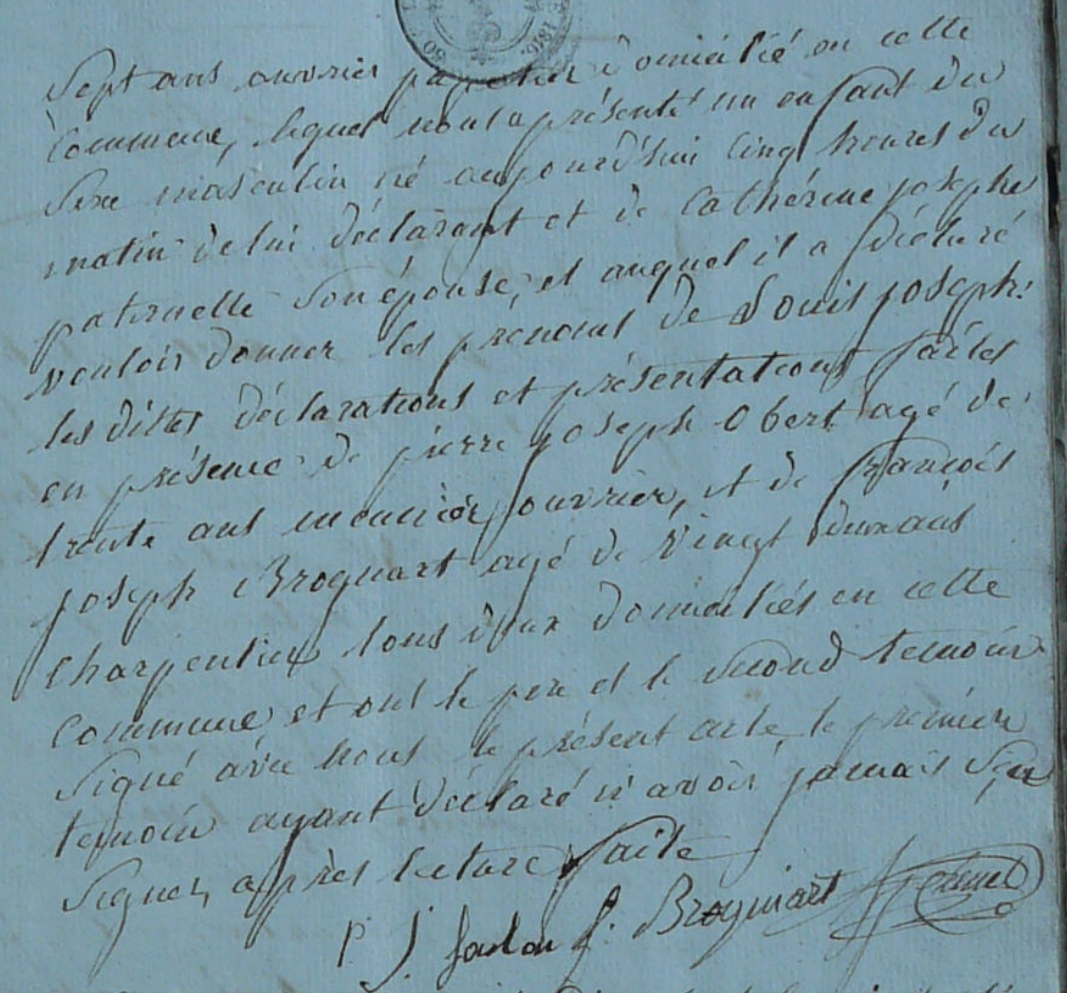 Sept ans ouvrier papetier domicilié en cette
Commune, lequel nous a présenté un enfant du
Sexe masculin né aujourd'hui Cinq heures du
matin de lui déclarant et de Cathérine josephe
paternelle Son épouse, et auquel il a déclaré
vouloir donner les prénoms de Louis joseph.
les dittes déclarations et présentations faites
en présence de pierre joseph Obert agé de
trente ans meunier ouvrier, et de françois
joseph Broquart agé de Vingt deux ans
Charpentier tous deux domiciliés en cette
Commune et ont le père et le second temoin
Signé avec nous le présent acte, le premier
temoin ayant déclaré n'avoir jamais Sçu
Signer, après lecture faite
P. J. f. Broquart